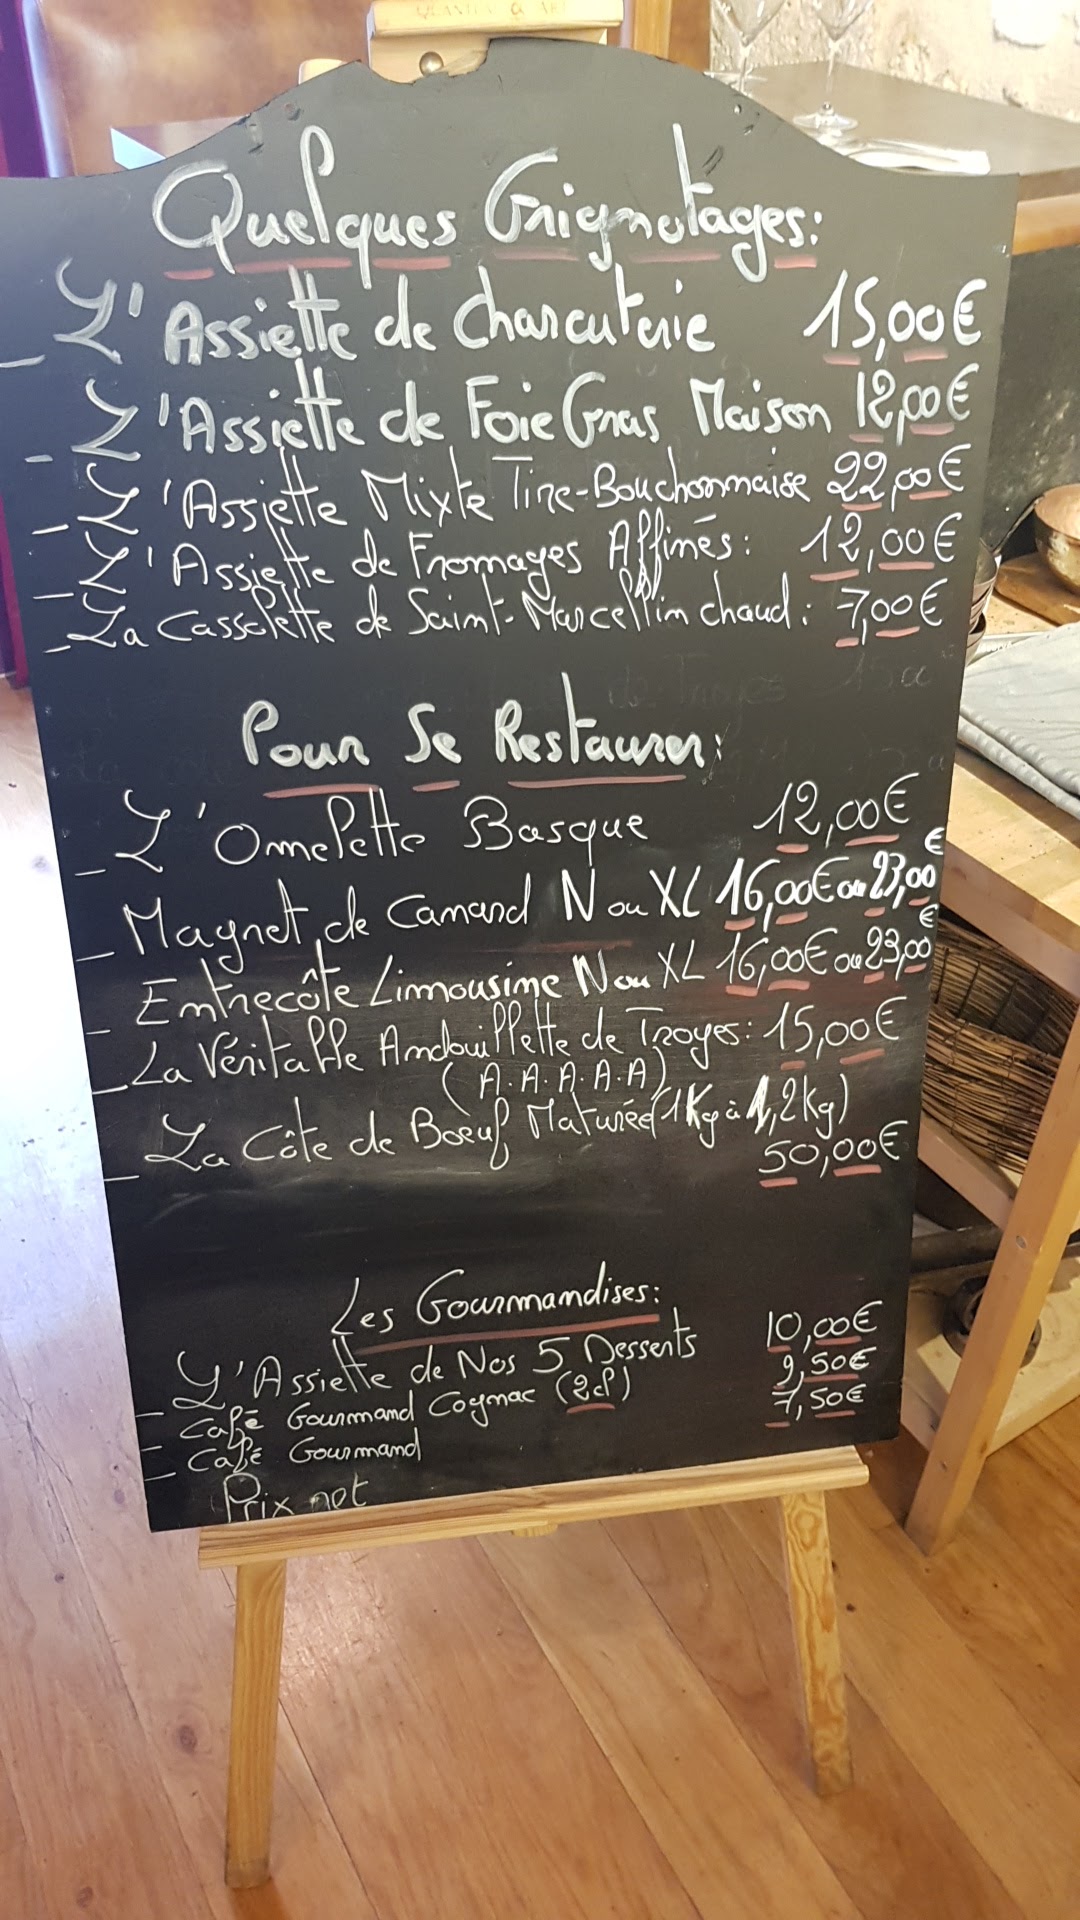 Quelques Grignotages:
- L'Assiette de Charcuterie 15,00€
- L'Assiette de Foie Gras Maison 12,00€
- L'Assiette Mixte Tire-Bouchonnaise 22,00€
- L'Assiette de Fromages Affinés: 12,00€
- La Cassolette de Saint-Marcellin chaud: 7,00€
Pour Se Restaurer:
- L'Omelette Basque 12,00€
- Magret de Canard N ou XL 16,00€ ou 23,00€
- Entrecôte Limousine N ou XL 16,00€ ou 23,00€
- La Véritable Andouillette de Troyes: 15,00€
(A.A.A.A.A)
- La Côte de Boeuf Maturée (1Kg à 1,2kg)
50,00€
Les Gourmandises:
- L'Assiette de Nos 5 Desserts 10,00€
- Café Gourmand Cognac (2cl) 9,50€
- Café Gourmand 7,50€
Prix net